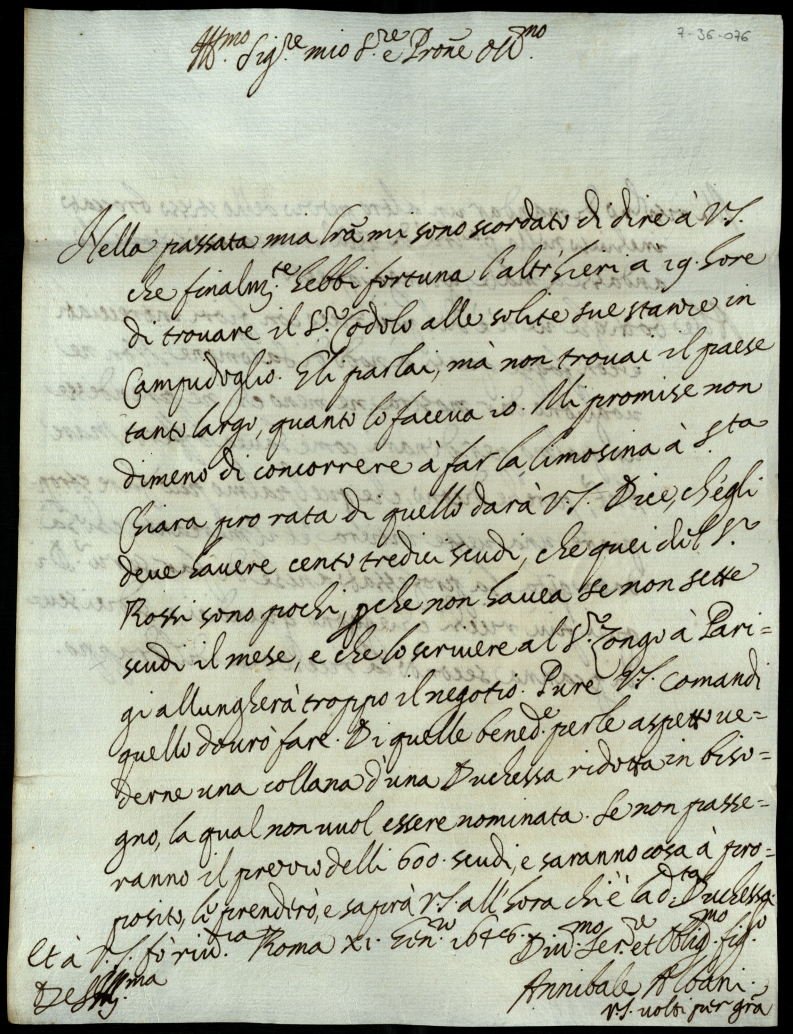 7-36-076
Ill.mo Sig.re mio S.re e Prone Oss.mo
Nella passata mia lra mi sono scordato di dire à V.S.
che finalm.te hebbi fortuna l'altr'hieri a 19. hore
di trouare il S.r Codolo alle solite sue stanze in
Campidoglio. Gli parlai, mà non trouai il paese
tanto largo, quanto lo faceua io. Mi promise non
dimeno di concorrere à far la limosina à S.ta
Chiara pro rata di quello darà V.S. Dice, ch'egli
deue hauere cento tredici scudi, che quei del S.r
Rossi sono pochi, pche non hauea se non sette
scudi il mese, e che lo scriuere al S.r Zongo à Pari=
gi allungherà troppo il negotio. Pure V.S. comandi
quello dourò fare. Di quelle bened.e perle aspetto ue=
derne una collana d'una Duchessa ridotta in biso=
gno, la qual non uuol essere nominata. Se non passe=
ranno il prezzo delli 600. scudi, e saranno cosa à pro=
posito, le prenderò, e saprà V.S. all'hora chi è la d.ta Duchessa.
Et à V.S. fò riu.za Roma XI. Gen.o 1646.
Di V.S. Ill.ma
Diu.mo Ser.re et Oblig.mo fig.o
Annibale Albani.
V.S. volti per gra